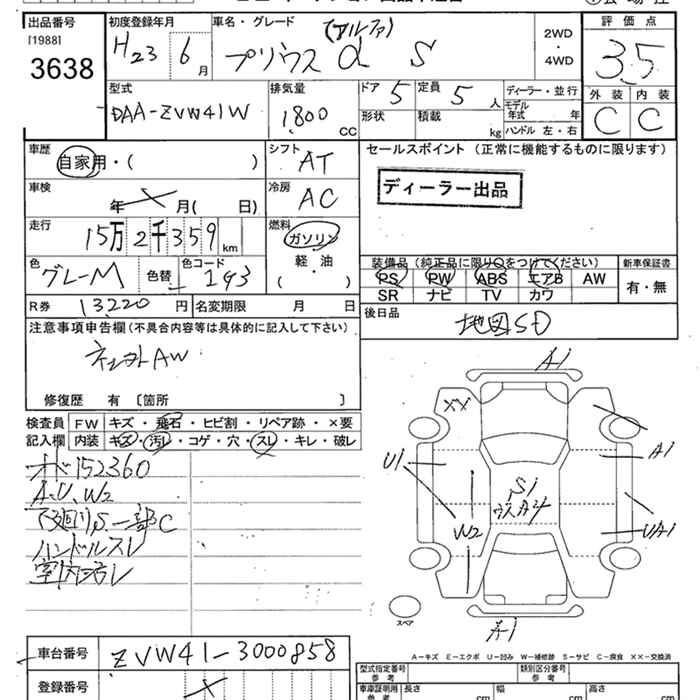 出品番号
[1988]
3638
初度登録年月
H23 6月
車名・グレード
(アルファ)
プリウス α S
2WD
・
4WD
評価点
3.5
型式
DAA-ZVW41W
排気量
1,800 CC
ドア 5
定員 5 人
形状
積載 kg
ディーラー・並行
モデル年式 年
ハンドル 左・右
外装 内装
C C
車歴
自家用・( )
シフト AT
車検
年 月( 日)
冷房 AC
走行
15万2千359 km
燃料
ガソリン
軽・油
( )
色
グレーM
色替
色コード
1G3
R券 13,220 円
名変期限 月 日
セールスポイント(正常に機能するものに限ります)
ディーラー出品
装備品(純正品に限り○をつけてください)
PS PW ABS エアB AW
SR ナビ TV カワ
新車保証書
有・無
後日品
地図SD
注意事項申告欄(不具合内容等は具体的に記入して下さい)
AW
修復歴 有 [箇所 ]
検査員記入欄
FW キズ・飛石・ヒビ割・リペア跡・×要
内装 キズ・汚レ・コゲ・穴・スレ・キレ・破レ
152360
A、U、W2
下廻りS 一部C
ハンドルスレ
室内汚レ
A1
XX
U1
A1
S1
W2
UA1
A1
スペア
A-キズ E-エクボ U-凹み W-補修跡 S-サビ C-腐食 XX-交換済
車台番号 ZVW41-3000858
登録番号
型式指定番号
参考
類別区分番号
参考
車庫証明用
参考
長さ cm
幅 cm
高さ cm